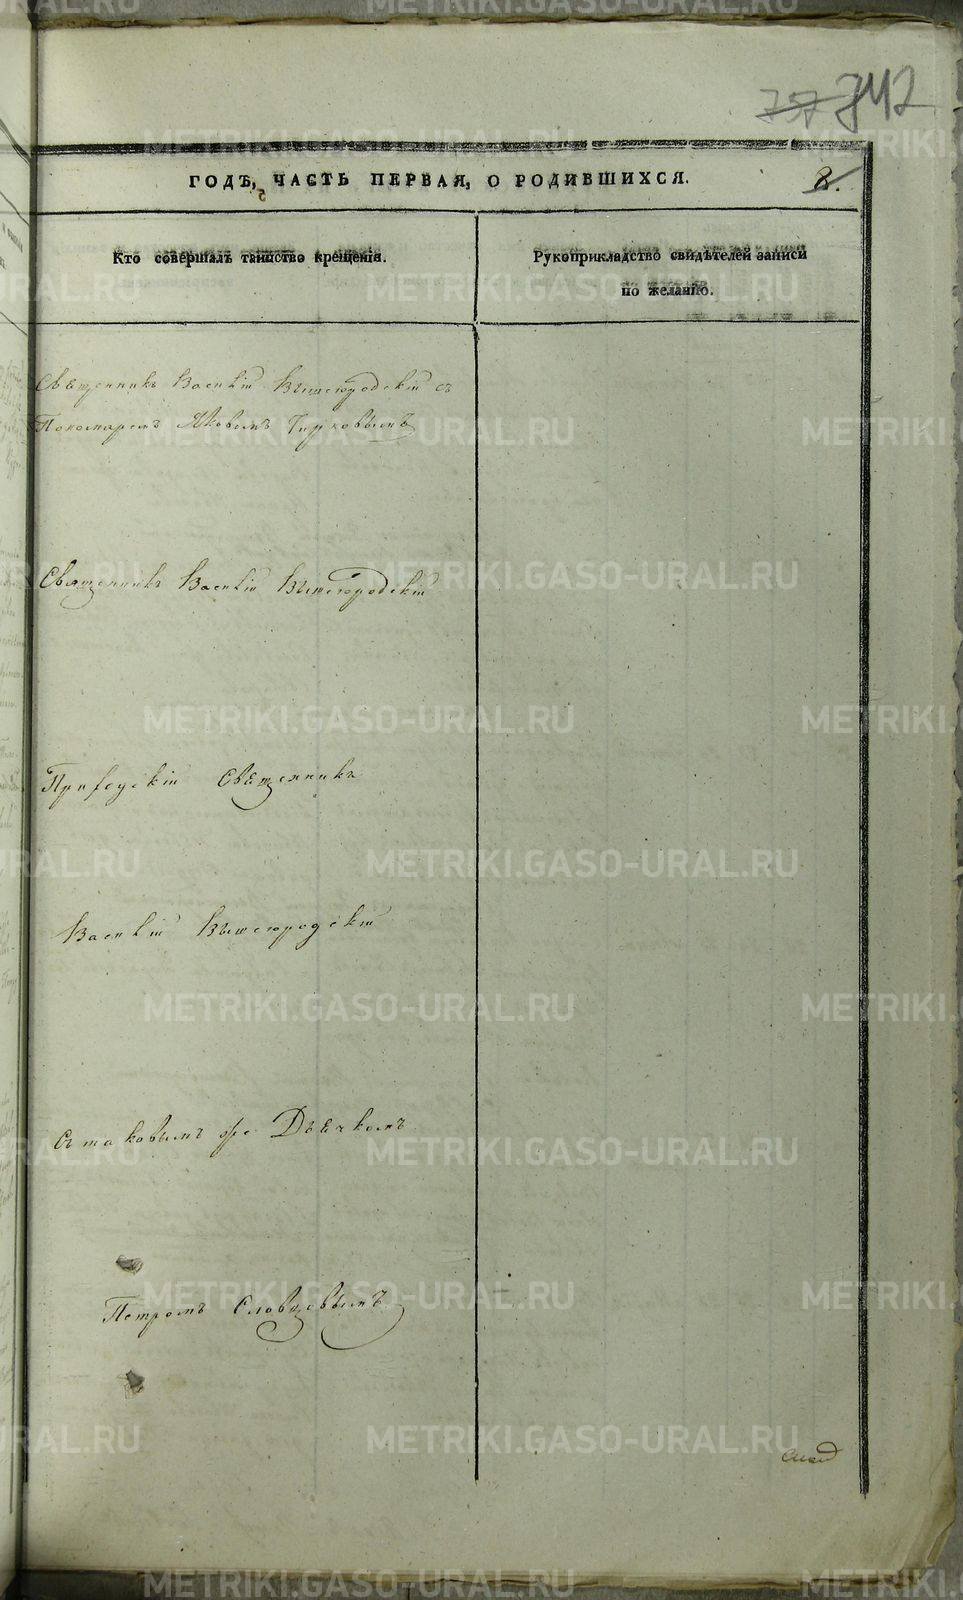 757 742
ГОДѢ, ЧАСТЬ ПЕРВАЯ, О РОДИВШИХСЯ. 8.
Кто совершалъ таинство крещенія.
Рукоприкладство свидѣтелей записи
по желанію.
Священникъ Василій Вышегородскій съ
Пономаремъ Яковомъ Чирковымъ
Священникъ Василій Вышегородскій
Приходскій Священникъ
Василій Вышегородскій
Съ таковымъ же Дьячкомъ
Петромъ Словцовымъ
METRIKI.GASO-URAL.RU